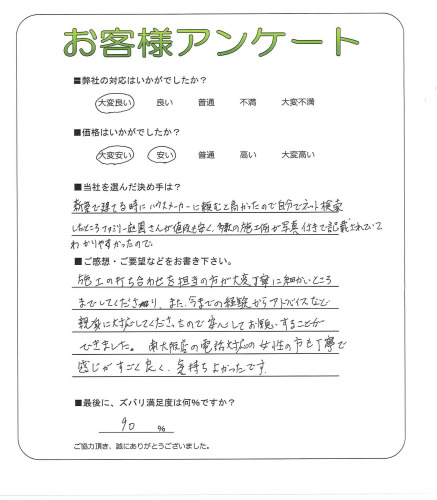 お客様アンケート
■弊社の対応はいかがでしたか？
大変良い 良い 普通 不満 大変不満
■価格はいかがでしたか？
大変安い 安い 普通 高い 大変高い
■当社を選んだ決め手は？
新築で建てる時にハウスメーカーに頼むと高かったので自分でネット検索
したところファミリー庭園さんが値段も安く、多数の施工例が写真付きで記載されていて
わかりやすかったので。
■ご感想・ご要望などをお書き下さい。
施工の打ち合わせを担当の方が大変丁寧に細かいところ
までしてくださり、また、今までの経験からアドバイスなど
親身に対応してくださったので安心してお願いすることが
できました。南大阪店の電話対応の女性の方も丁寧で
感じがすごく良く、気持ちよかったです。
■最後に、ズバリ満足度は何％ですか？
90 ％
ご協力頂き、誠にありがとうございました。